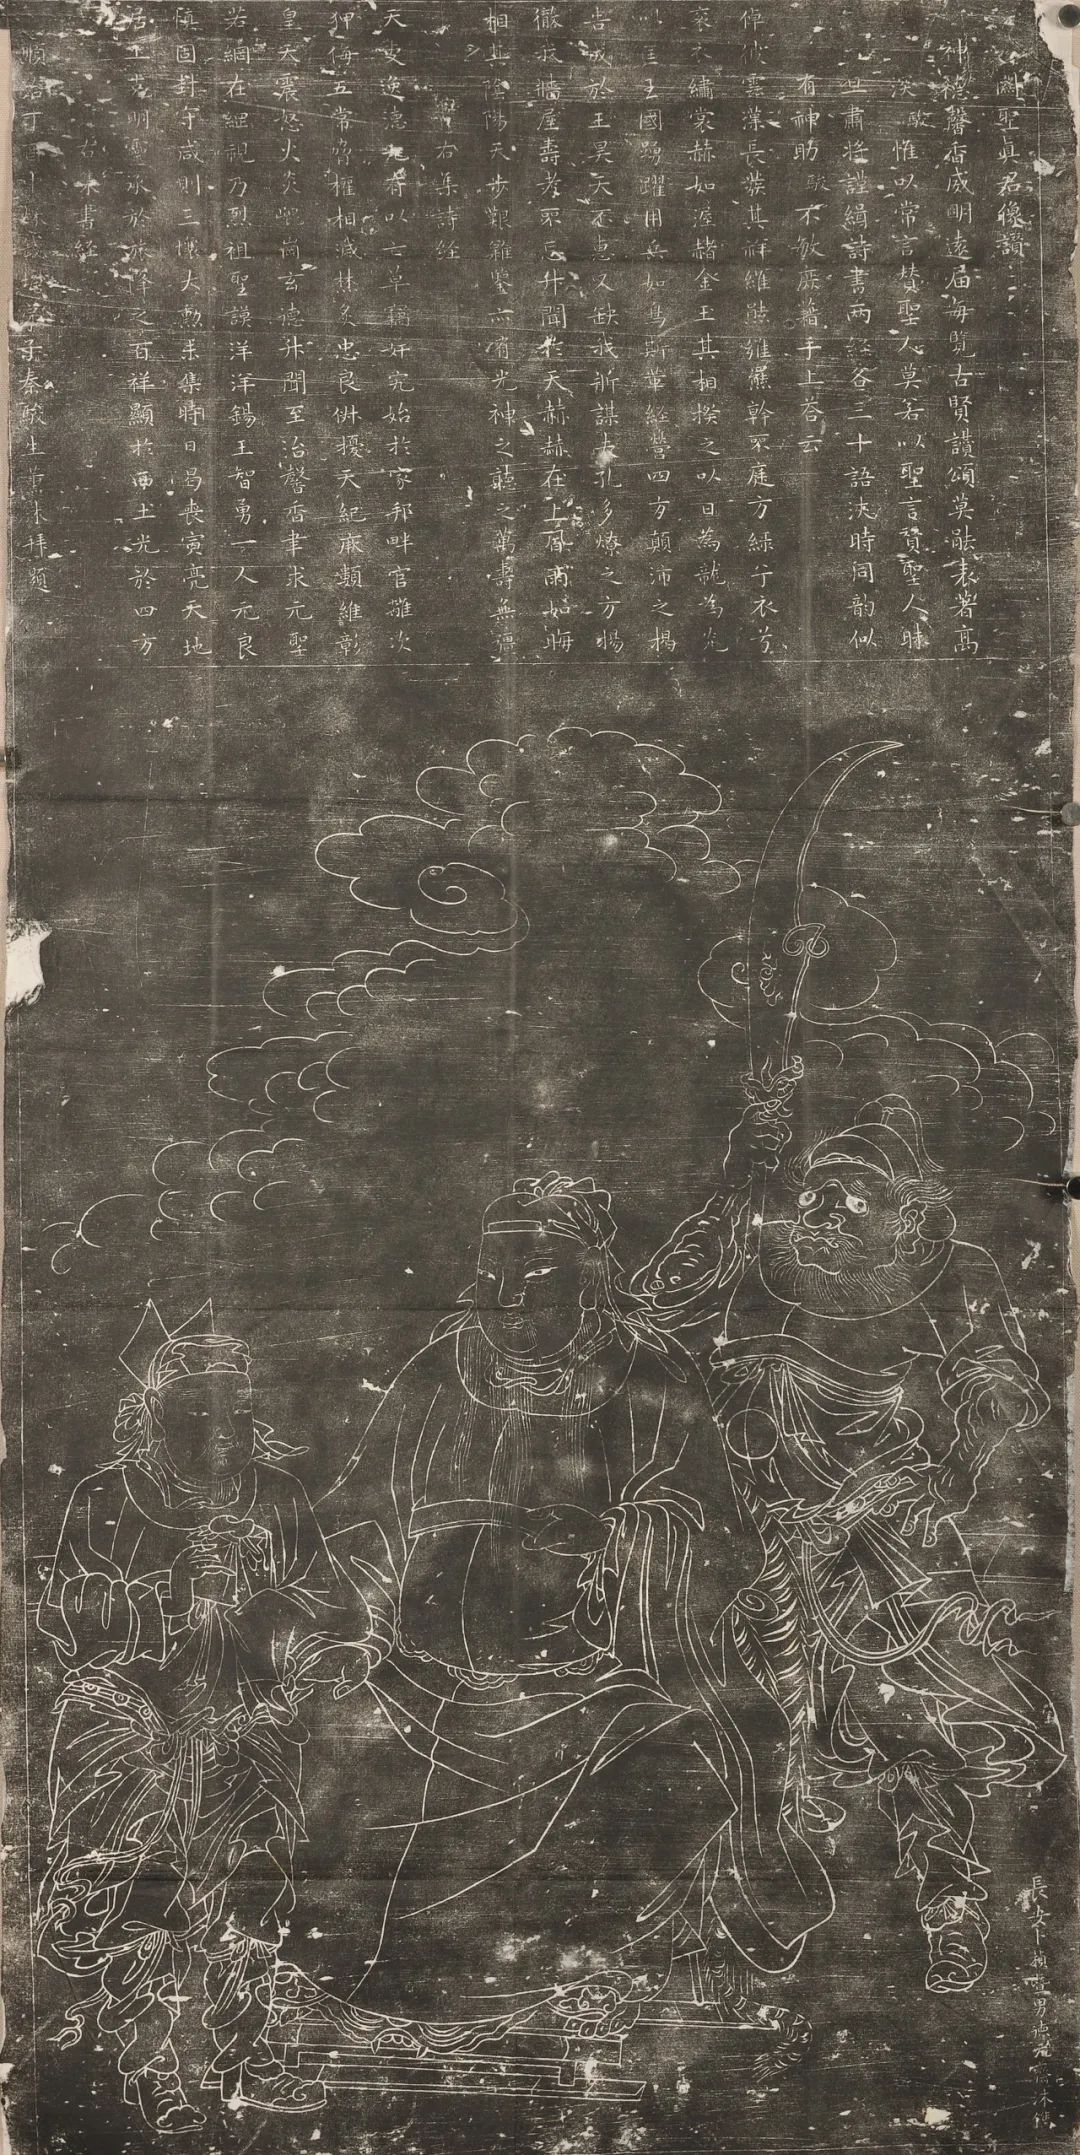 關聖眞君像讚
神德馨香威明遠届每覧古賢讚頌莫能表著髙
深敂惟以常言賛聖人莫若以聖言賛聖人昧
旦肅將謹緝詩書兩經各三十語浃時同韵似
有神助駿不敏庶藉手上荅云
倬彼雲漢長發其祥維熊維羆幹不庭方緑兮衣兮
衮衣繡裳赫如渥赭金玉其相揆之以日為龍為光
以匡王國踴躍用兵如鳥斯革經營四方顛沛之揭
告成於王昊天不惠又缺我斨謀夫孔多燎之方揚
徹我牆屋壽考不忘升聞於天赫赫在上風雨如晦
相其陰陽天步艱難鑒亦有光神之聽之萬壽無疆
右集詩經
天吏逸德
草竊奸宄始於家邦畔官離次
狎侮五常
相滅
炙忠良俶擾天紀厥類維彰
皇天震怒火炎崑崗玄德升聞至治馨香聿求元聖
若網在綱視乃烈祖聖謨洋洋錫王智勇一人元良
慎固封守咸則三壤大勲未集時日曷喪寅亮天地
居上克明
承於旅降之百祥顯於西土光於四方
右集書經
順治丁酉
弟子秦駿生薰沐拜題
長安卜
男德
沐鐫